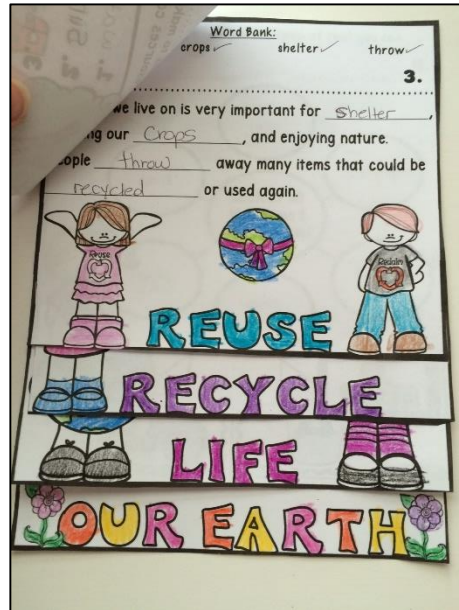 Word Bank:
crops✓ shelter✓ throw✓
3.
we live on is very important for shelter,
our Crops, and enjoying nature.
throw away many items that could be
recycled or used again.
Reuse
Reclaim
REUSE
RECYCLE
LIFE
OUR EARTH